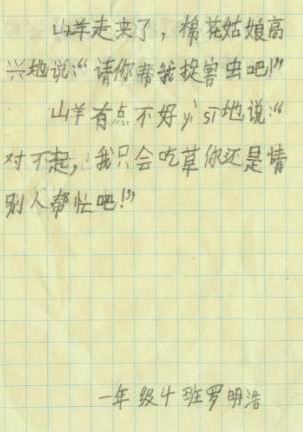 山羊走来了，棉花姑娘高
兴地说：“请你帮我捉害虫吧！”
山羊有点不好yì sī地说：“
对不起，我只会吃草你还是请
别人帮忙吧！”
一年级4班罗明浩